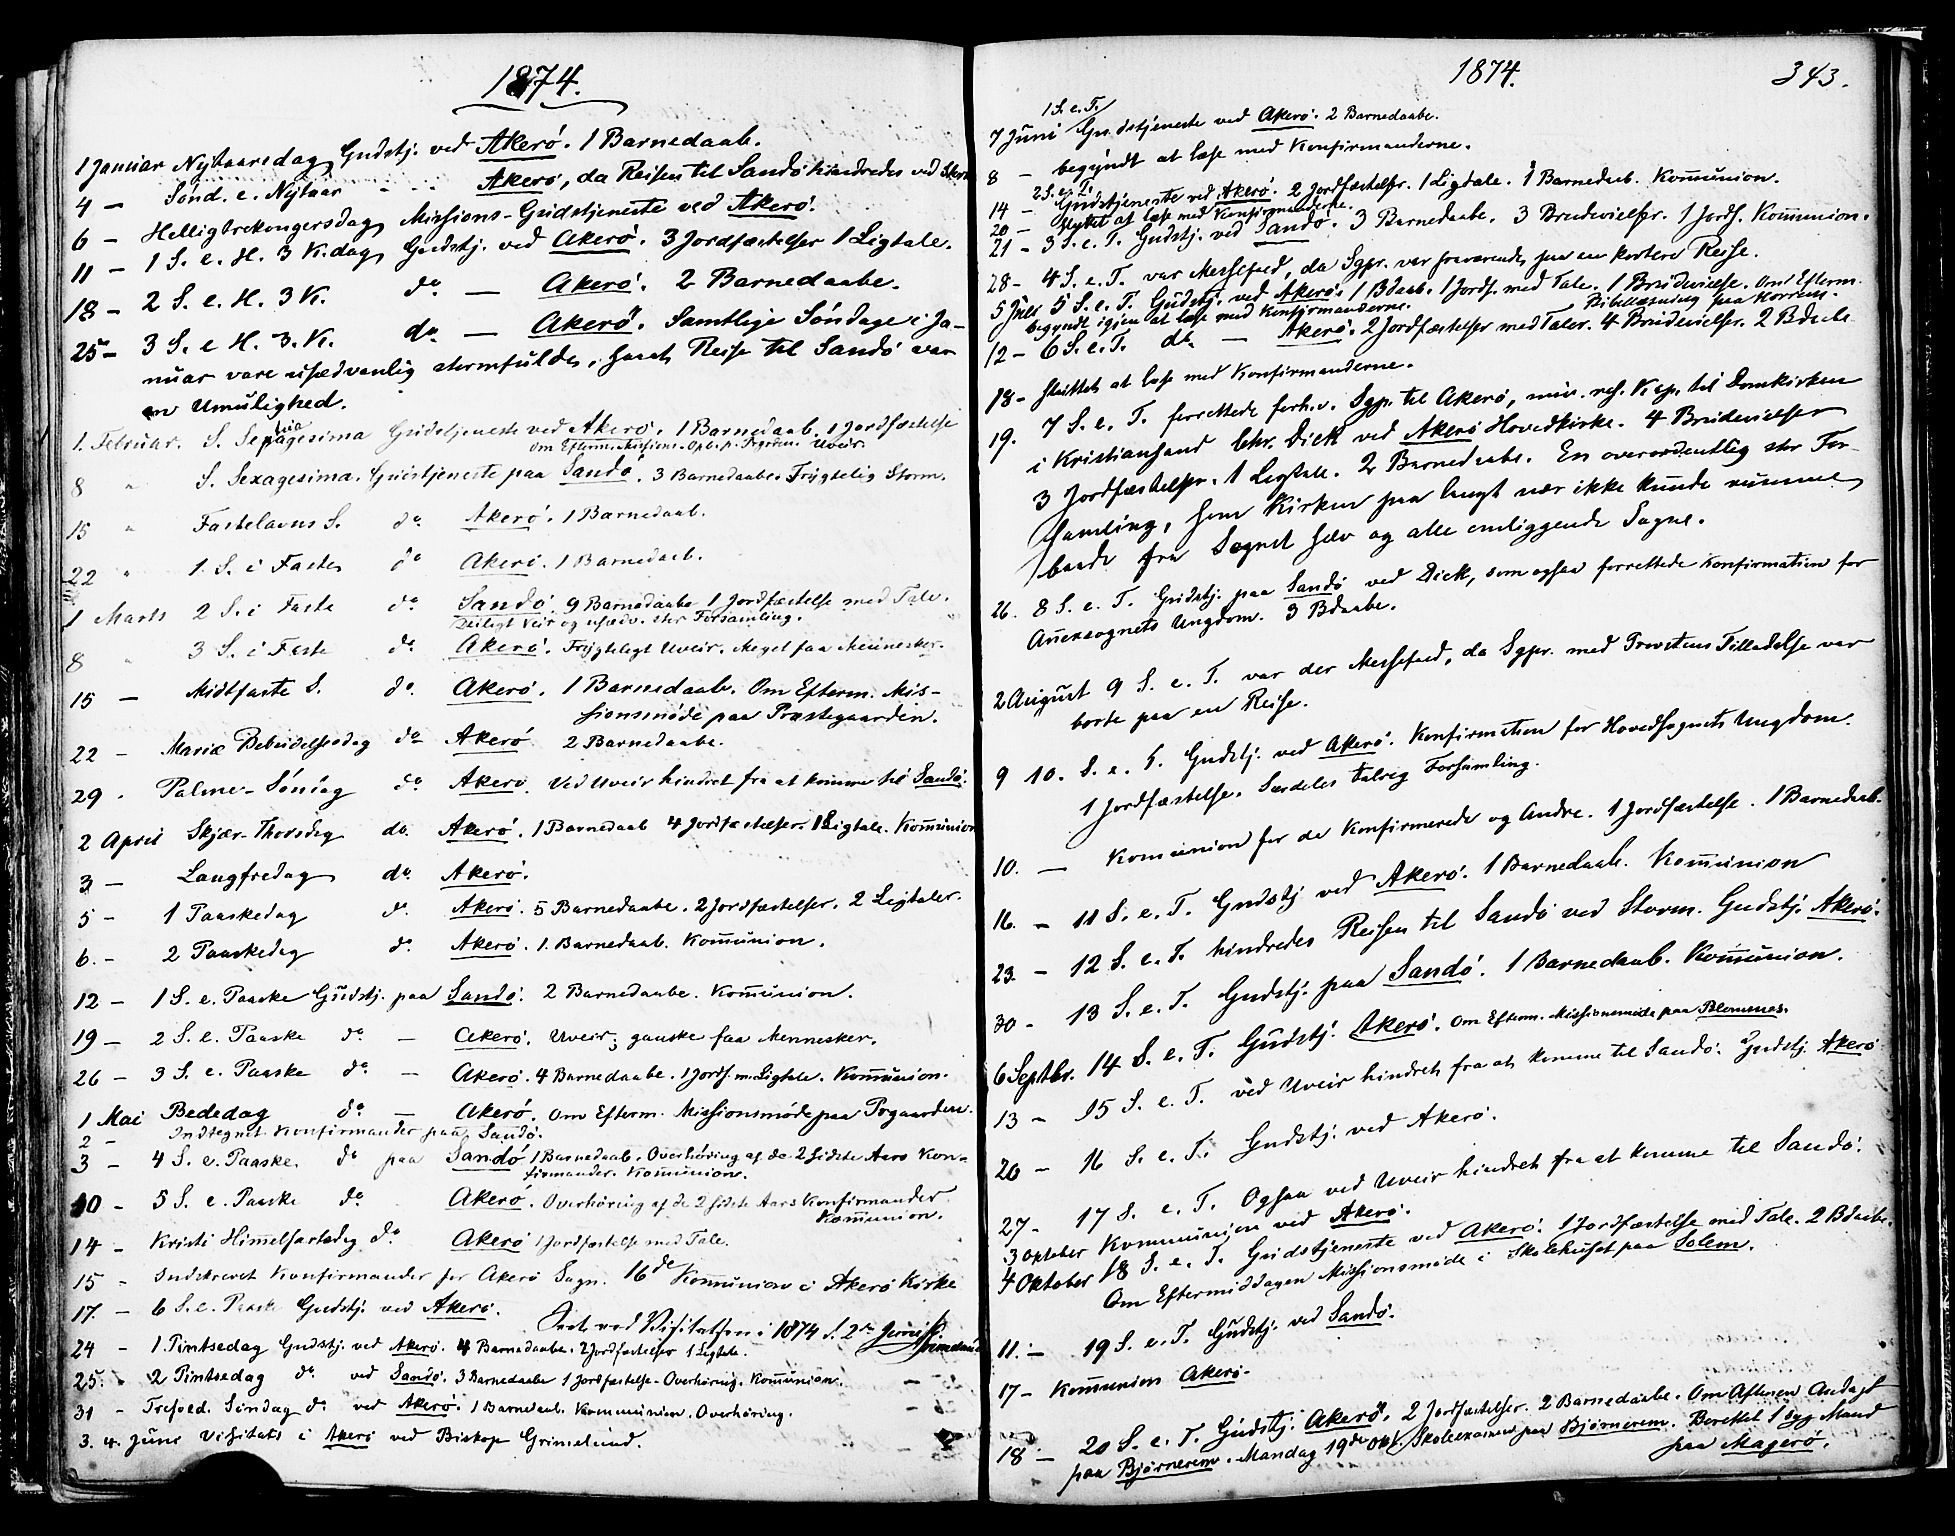 1874.
1 Januar Nytaarsdag Gudstj. ved Akerø. 1 Barnedaab.
4 — Sønd. e. Nytaar - - - Akerø, da Reisen til Sandø hindredes ved Storm
6 — Helligtrekongersdag Missions-Gudstjeneste ved Akerø.
11 — 1 S. e. H. 3 K.dag Gudstj. ved Akerø. 3 Jordfæstelser 1 Ligtale.
18 — 2 S. e. H. 3 K. do — Akerø. 2 Barnedaabe.
25 — 3 S. e H. 3. K. do — Akerø. Samtlige Søndage i Ja-
nuar vare usædvanlig stormfulde, saa at Reise til Sandø var
en Umulighed.
1. Februar. S. Septuagesima Gudstjeneste ved Akerø. 1 Barnedaab. 1 Jordfæstelse
Om Efterm. Missions-Opb. p. Prgrden. Uveir.
8 " S. Sexagesima. Gudstjeneste paa Sandø. 3 Barnedaabe. Frygtelig Storm.
15 " Fastelavns S. do Akerø. 1 Barnedaab.
22 " 1. S. i Faste do Akerø. 1 Barnedaab.
1 Marts 2 S. i Faste do Sandø. 9 Barnedaabe 1 Jordfæstelse med Tale.
Deiligt Veir og usædv. stor Forsamling.
8 " 3 S. i Faste do Akerø. Frygteligt Uveir. Meget faa Mennesker.
15 — Midtfaste S. do. Akerø. 1 Barnedaab. Om Efterm. Mis-
sionsmøde paa Præstegaarden.
22 — Mariæ Bebudelsesdag do Akerø. 2 Barnedaabe.
29 . Palme-Søndag do Akerø. Ved Uveir hindret fra at komme til Sandø.
2 April Skjær-Thorsdag do. Akerø. 1 Barnedaab 4 Jordfæstelser. 1 Ligtale. Kommunion
3 — Langfredag do. Akerø.
5 — 1 Paaskedag do. Akerø. 5 Barnedaabe. 2 Jordfæstelser. 2 Ligtaler.
6. — 2 Paaskedag do. Akerø. 1. Barnedaab. Kommunion.
12 — 1 S. e. Paaske Gudstj. paa Sandø. 2 Barnedaabe. Kommunion.
19 — 2 S. e. Paaske do. — Akerø. Uveir; ganske faa Mennesker.
26 — 3 S. e. Paaske do. — Akerø. 4 Barnedaabe. 1 Jordf. m. Ligtale. Kommunion.
1 Mai Bededag do. — Akerø. Om Efterm. Missionsmøde paa Prgaarden.
2 — Indtegnet Konfirmander paa Sandø.
3 — 4 S. e. Paaske. do paa Sandø 1 Barnedaab. Overhøring af de 2 sidste Aars Kon-
firmander. Kommunion.
10 — 5 S. e. Paaske do. Akerø. Overhøring af de 2 sidste Aars Konfirmander.
Kommunion.
14 — Kristi Himmelfartsdag do. Akerø 1 Jordfæstelse med Tale.
15 — Indskrevet Konfirmander for Akerø Sogn. 16de Kommunion i Akerø Kirke
17. — 6 S. e. Paaske Gudstj. ved Akerø.
Seet ved Visitatsen i 1874 d. 2de Juni
24 — 1. Pintsedag Gudstj. ved Akerø. 4 Barnedaabe. 2 Jordfæstelser 1 Ligtale.
25. — 2 Pintsedag do. ved Sandø. 3 Barnedaabe 1 Jordfæstelse. Overhøring. Kommunion.
31 — Trefold. Søndag do ved Akerø. 1 Barnedaab. Kommunion. Overhøring.
3. 4. Juni Visitats i Akerø ved Biskop Grimelund.
1874.
343.
1 S. e. T.
7 Juni Gudstjeneste ved Akerø. 2 Barnedaabe.
8 — begyndt at læse med Konfirmanderne.
2 S. e. T.
14 — Gudstjeneste ved Akerø. 2 Jordfæstelser. 1 Ligtale. 1 Barnedaab. Kommunion.
20 — Sluttet at læse med Konfirmanderne.
21 — 3 S. e. T. Gudstj. ved Sandø. 3 Barnedaabe. 3 Brudevielser. 1 Jordf. Kommunion.
28 — 4 S. e. T. var Messefald, da Sgpr. var fraværende paa en kortere Reise.
5 Juli 5 S. e. T. Gudstj. ved Akerø. 1 Bdaab. 1 Jordf. med Tale. 1 Brudevielse. Om Efterm.
Bibellæsning paa Horrem.
begyndt igjen at læse med Konfirmanderne.
12 — 6 S. e. T. do. — Akerø. 2 Jordfæstelser med Taler. 4 Brudevielser. 2 Bdaabe
18 — sluttet at læse med Konfirmanderne.
19. 7 S. e. T. forrettede forhv. Sgpr. til Akerø, nuv. res. Kap. til Domkirken
i Kristiansand Chr. Dick ved Akerø Hovedkirke. 4 Brudevielser
3 Jordfæstelser. 1 Ligtale. 2 Barnedaabe. En overordentlig stor For-
samling, som Kirken paa langt nær ikke kunde rumme,
baade fra Sognet selv og alle omliggende Sogne.
26. 8 S. e. T. Gudstj. paa Sandø ved Dick, som ogsaa forrettede Konfirmation for
Annexsognets Ungdom. 3 Bdaabe.
2 August 9 S. e. T. var der Messefald, da Sgpr. med Provstens Tilladelse var
borte paa en Reise.
9 10. S. e. T. Gudstj. ved Akerø. Konfirmation for Hovedsognets Ungdom.
1 Jordfæstelse. Særdeles talrig Forsamling.
10. — Kommunion for de Konfirmerede og Andre. 1 Jordfæstelse. 1 Barnedaab.
16. — 11 S. e. T. Gudstj ved Akerø. 1 Barnedaab. Kommunion
23 — 12 S. e. T. hindredes Reisen til Sandø ved Storm. Gudstj. Akerø.
30 — 13 S. e. T. Gudstj. paa Sandø. 1 Barnedaab. Kommunion.
6 Septbr. 14 S. e. T. Gudstj. Akerø. Om Efterm. Missionsmøde paa Blomnes.
13 — 15 S. e. T. ved Uveir hindret fra at komme til Sandø. Gudstj. Akerø
20 — 16 S. e. T. Gudstj. ved Akerø.
27 — 17 S. e. T. Ogsaa ved Uveir hindret fra at komme til Sandø.
3 Oktober Kommunion ved Akerø.
4 Oktober 18 S. e. T. Gudstjeneste ved Akerø. 1 Jordfæstelse med Tale. 2 Bdaabe.
Om Eftermiddagen Missionsmøde i Skolehuset paa Solem.
11. — 19 S. e. T. Gudstj. ved Sandø.
17 — Kommunion Akerø.
18 — 20 S. e. T. Gudstj. Akerø. 2 Jordfæstelser. 2 Barnedaabe. Om Aftenen Andagt
paa Bjørnerem. Mandag 19de Okt. Skoleexamen paa Bjørnerem. Berettet 1 syg Mand
paa Magerø.